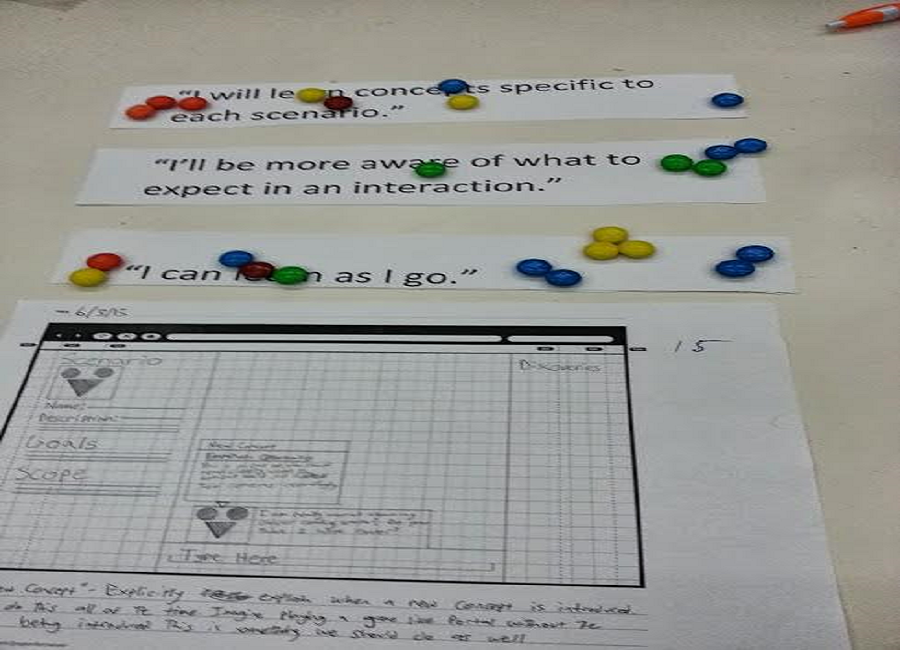 "I will learn concepts specific to
each scenario."
"I'll be more aware of what to
expect in an interaction."
"I can learn as I go."
15
Scenario
Discoveries
Name:
Description:
Goals
Scope
New Concept
Type Here
Concept" - Explicitly explain when a new concept is introduced.
do this all of the time Imagine playing a game like Portal without the
being introduced This is something we should do as well